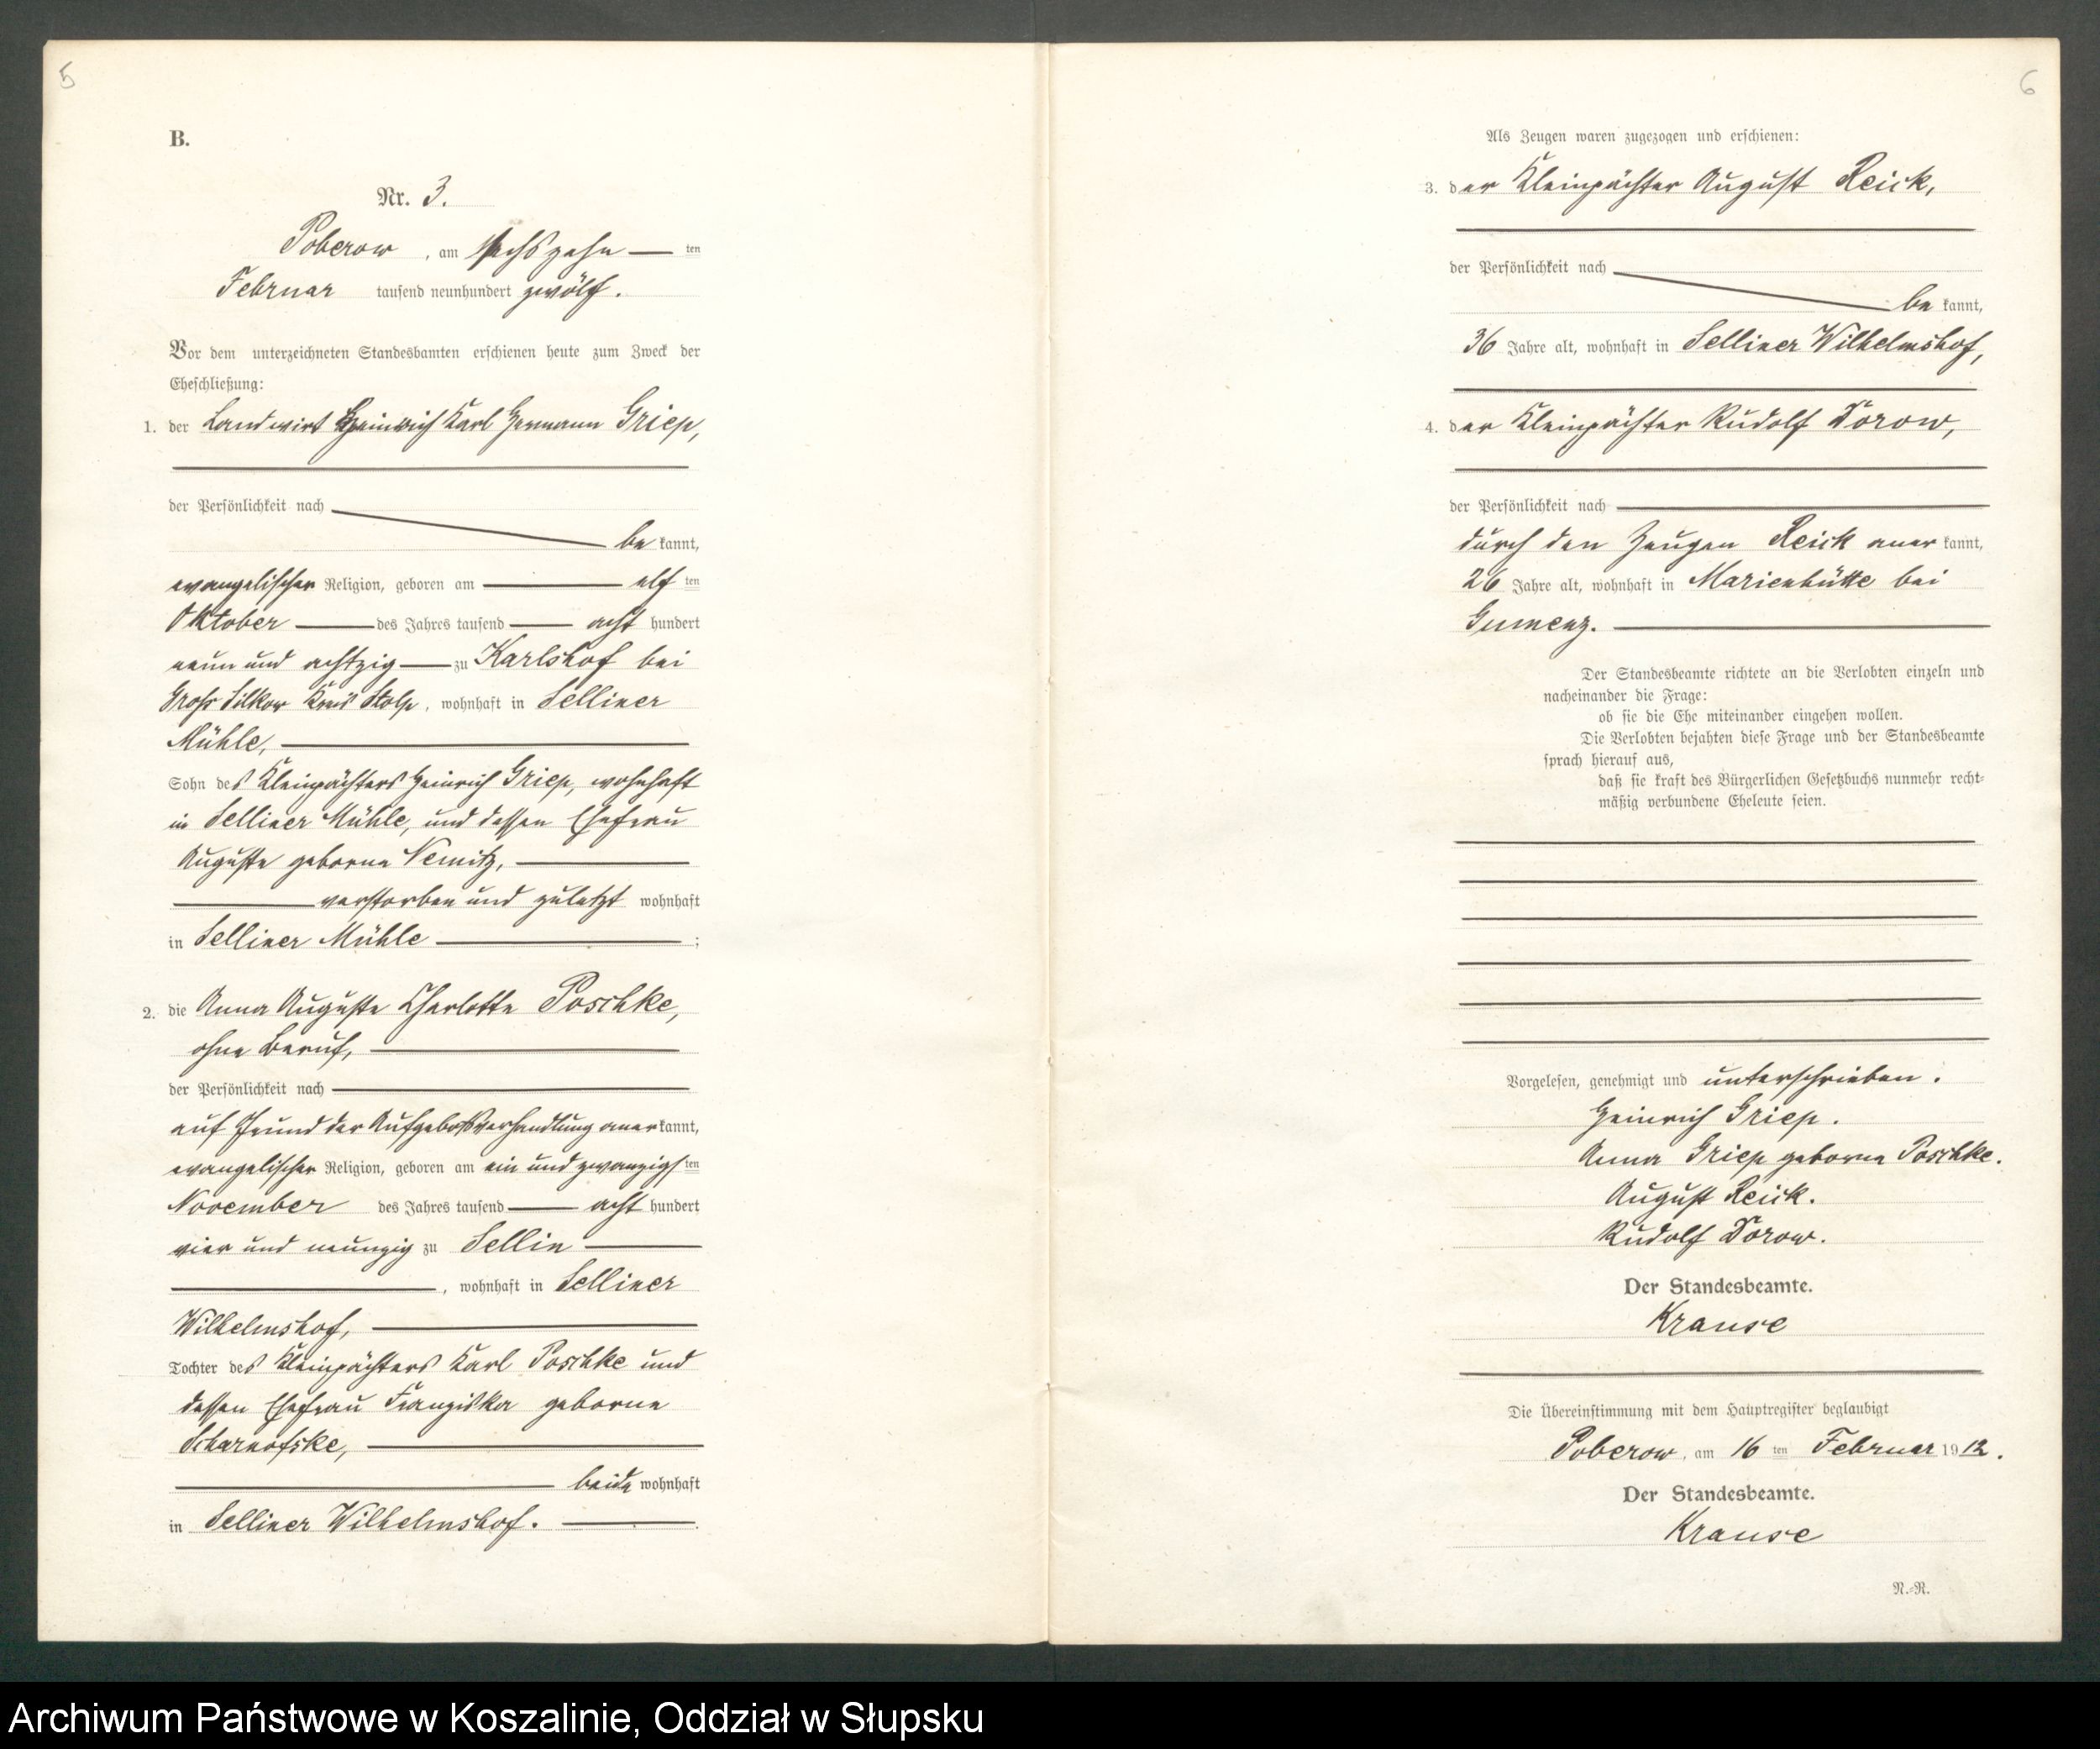 5
B.
Nr. 3.
Poberow, am sechszehn ten
Februar tausend neunhundert zwölf.
Vor dem unterzeichneten Standesbamten erschienen heute zum Zweck der
Eheschließung:
1. der Landwirt Heinrich Karl Hermann Griep,
der Persönlichkeit nach
be kannt,
evangelischer Religion, geboren am elf ten
Oktober des Jahres tausend acht hundert
neun und achtzig zu Karlshof bei
Gross Silkow Kreis Stolp, wohnhaft in Selliner
Mühle,
Sohn des Kleinpächters Heinrich Griep, wohnhaft
in Selliner Mühle, und dessen Ehefrau
Auguste geborne Nemitz,
verstorben und zuletzt wohnhaft
in Selliner Mühle ;
2. die Anna Auguste Charlotte Poschke,
ohne Beruf,
der Persönlichkeit nach
auf Grund der Aufgebotsverhandlung anerkannt,
evangelischer Religion, geboren am ein und zwanzigsten
November des Jahres tausend acht hundert
vier und neunzig zu Sellin
, wohnhaft in Selliner
Wilhelmshof,
Tochter des Kleinpächters Karl Poschke und
dessen Ehefrau Franziska geborne
Scharnofske,
beide wohnhaft
in Selliner Wilhelmshof.
6
Als Zeugen waren zugezogen und erschienen:
3. der Kleinpächter August Reick,
der Persönlichkeit nach
be kannt,
36 Jahre alt, wohnhaft in Selliner Wilhelmshof,
4. der Kleinpächter Rudolf Dorow,
der Persönlichkeit nach
durch den Zeugen Reick aner kannt,
26 Jahre alt, wohnhaft in Marienhütte bei
Gumenz.
Der Standesbeamte richtete an die Verlobten einzeln und
nacheinander die Frage:
ob sie die Ehe miteinander eingehen wollen.
Die Verlobten bejahten diese Frage und der Standesbeamte
sprach hierauf aus,
daß sie kraft des Bürgerlichen Gesetzbuchs nunmehr recht-
mäßig verbundene Eheleute seien.
Vorgelesen, genehmigt und unterschrieben.
Heinrich Griep.
Anna Griep geborne Poschke.
August Reick.
Rudolf Dorow.
Der Standesbeamte.
Krause
Die Übereinstimmung mit dem Hauptregister beglaubigt
Poberow, am 16 ten Februar 1912.
Der Standesbeamte.
Krause
N.-R.
Archiwum Państwowe w Koszalinie, Oddział w Słupsku